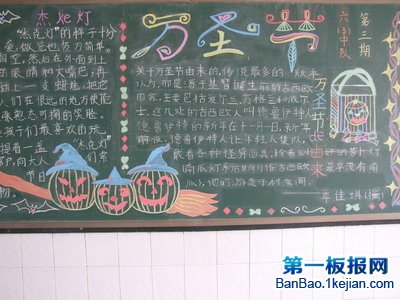 杰克灯
"杰克灯"的样子十分
可爱，做法也极为简单。
空，然后在外面刻上
的眼睛和大嘴巴，再
上一支蜡烛，把它
人们在很远的地方便能
张憨态可掬的笑脸。
孩子们最喜欢的玩
提着一盏"杰克灯"
向大人们索
节日
物。
万圣节
关于万圣节由来的，传说最多的版本
认为，那是源于基督诞生前的古西欧
国家，主要包括爱尔兰、苏格兰和威尔
士。这几处的古西欧人叫德鲁伊特人
德鲁伊特的新年在十一月一日，新年
前夜，德鲁伊特人让年轻人集队，
戴着各种怪异面具，拎着刻好的萝卜灯
（南瓜灯系后期习俗，古西欧最早没有南
瓜），他们游走于村落间。
万圣节由来
第三期
六(3)中队
第一板报网
BanBao.1kejian.com